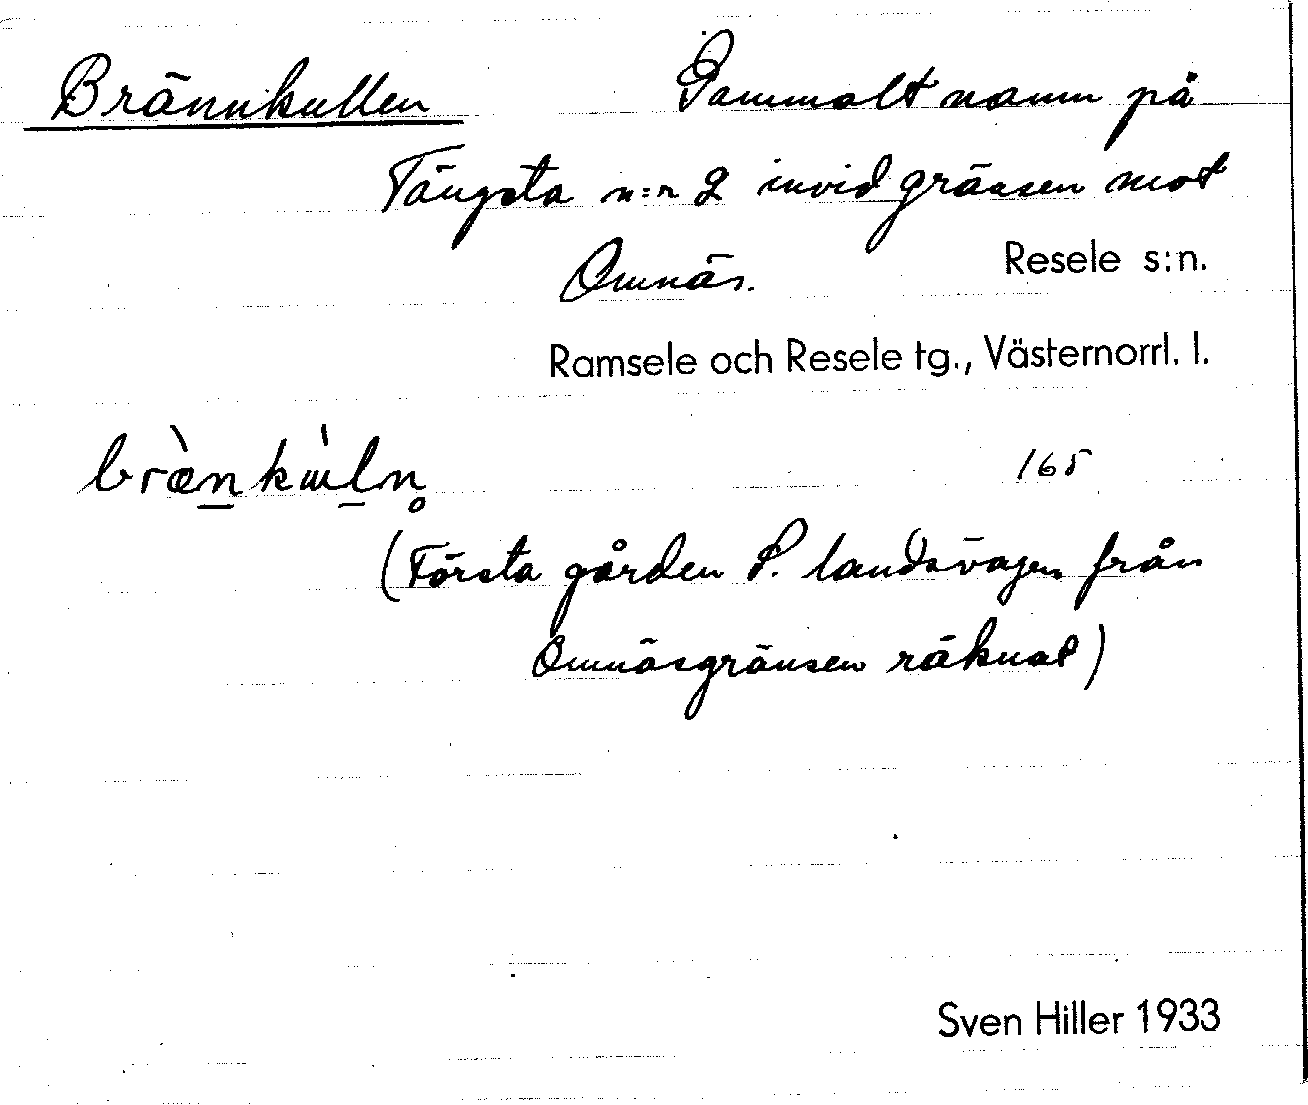 Brännkullen Gammalt namn på
Tängsta n:r 2 invid gränsen mot
Omnäs. Resele s:n.
Ramsele och Resele tg., Västernorrl. l.
165
(Första gården S. landsvägen från
Omnäsgränsen räknat)
Sven Hiller 1933